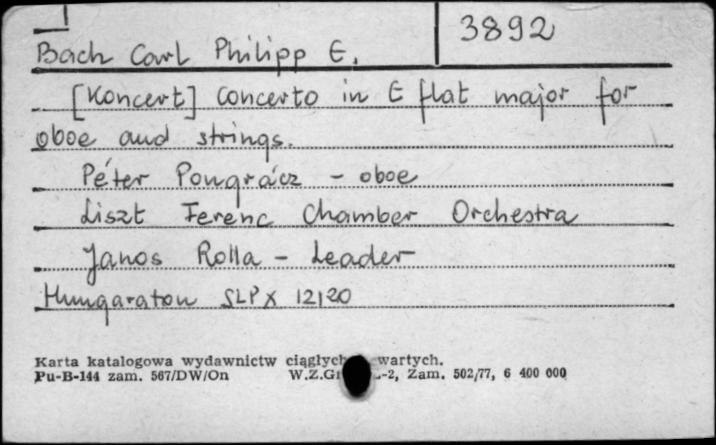 3892
Bach Carl Philipp E.
[Koncert] Concerto in E flat major for
oboe and strings.
Péter Pongrácz - oboe
Liszt Ferenc Chamber Orchestra
Janos Rolla - Leader
Hungaraton SLPX 12120
Karta katalogowa wydawnictw ciągłych wartych.
Pu-B-144 zam. 567/DW/On W.Z.Gr -2, Zam. 502/77, 6 400 000